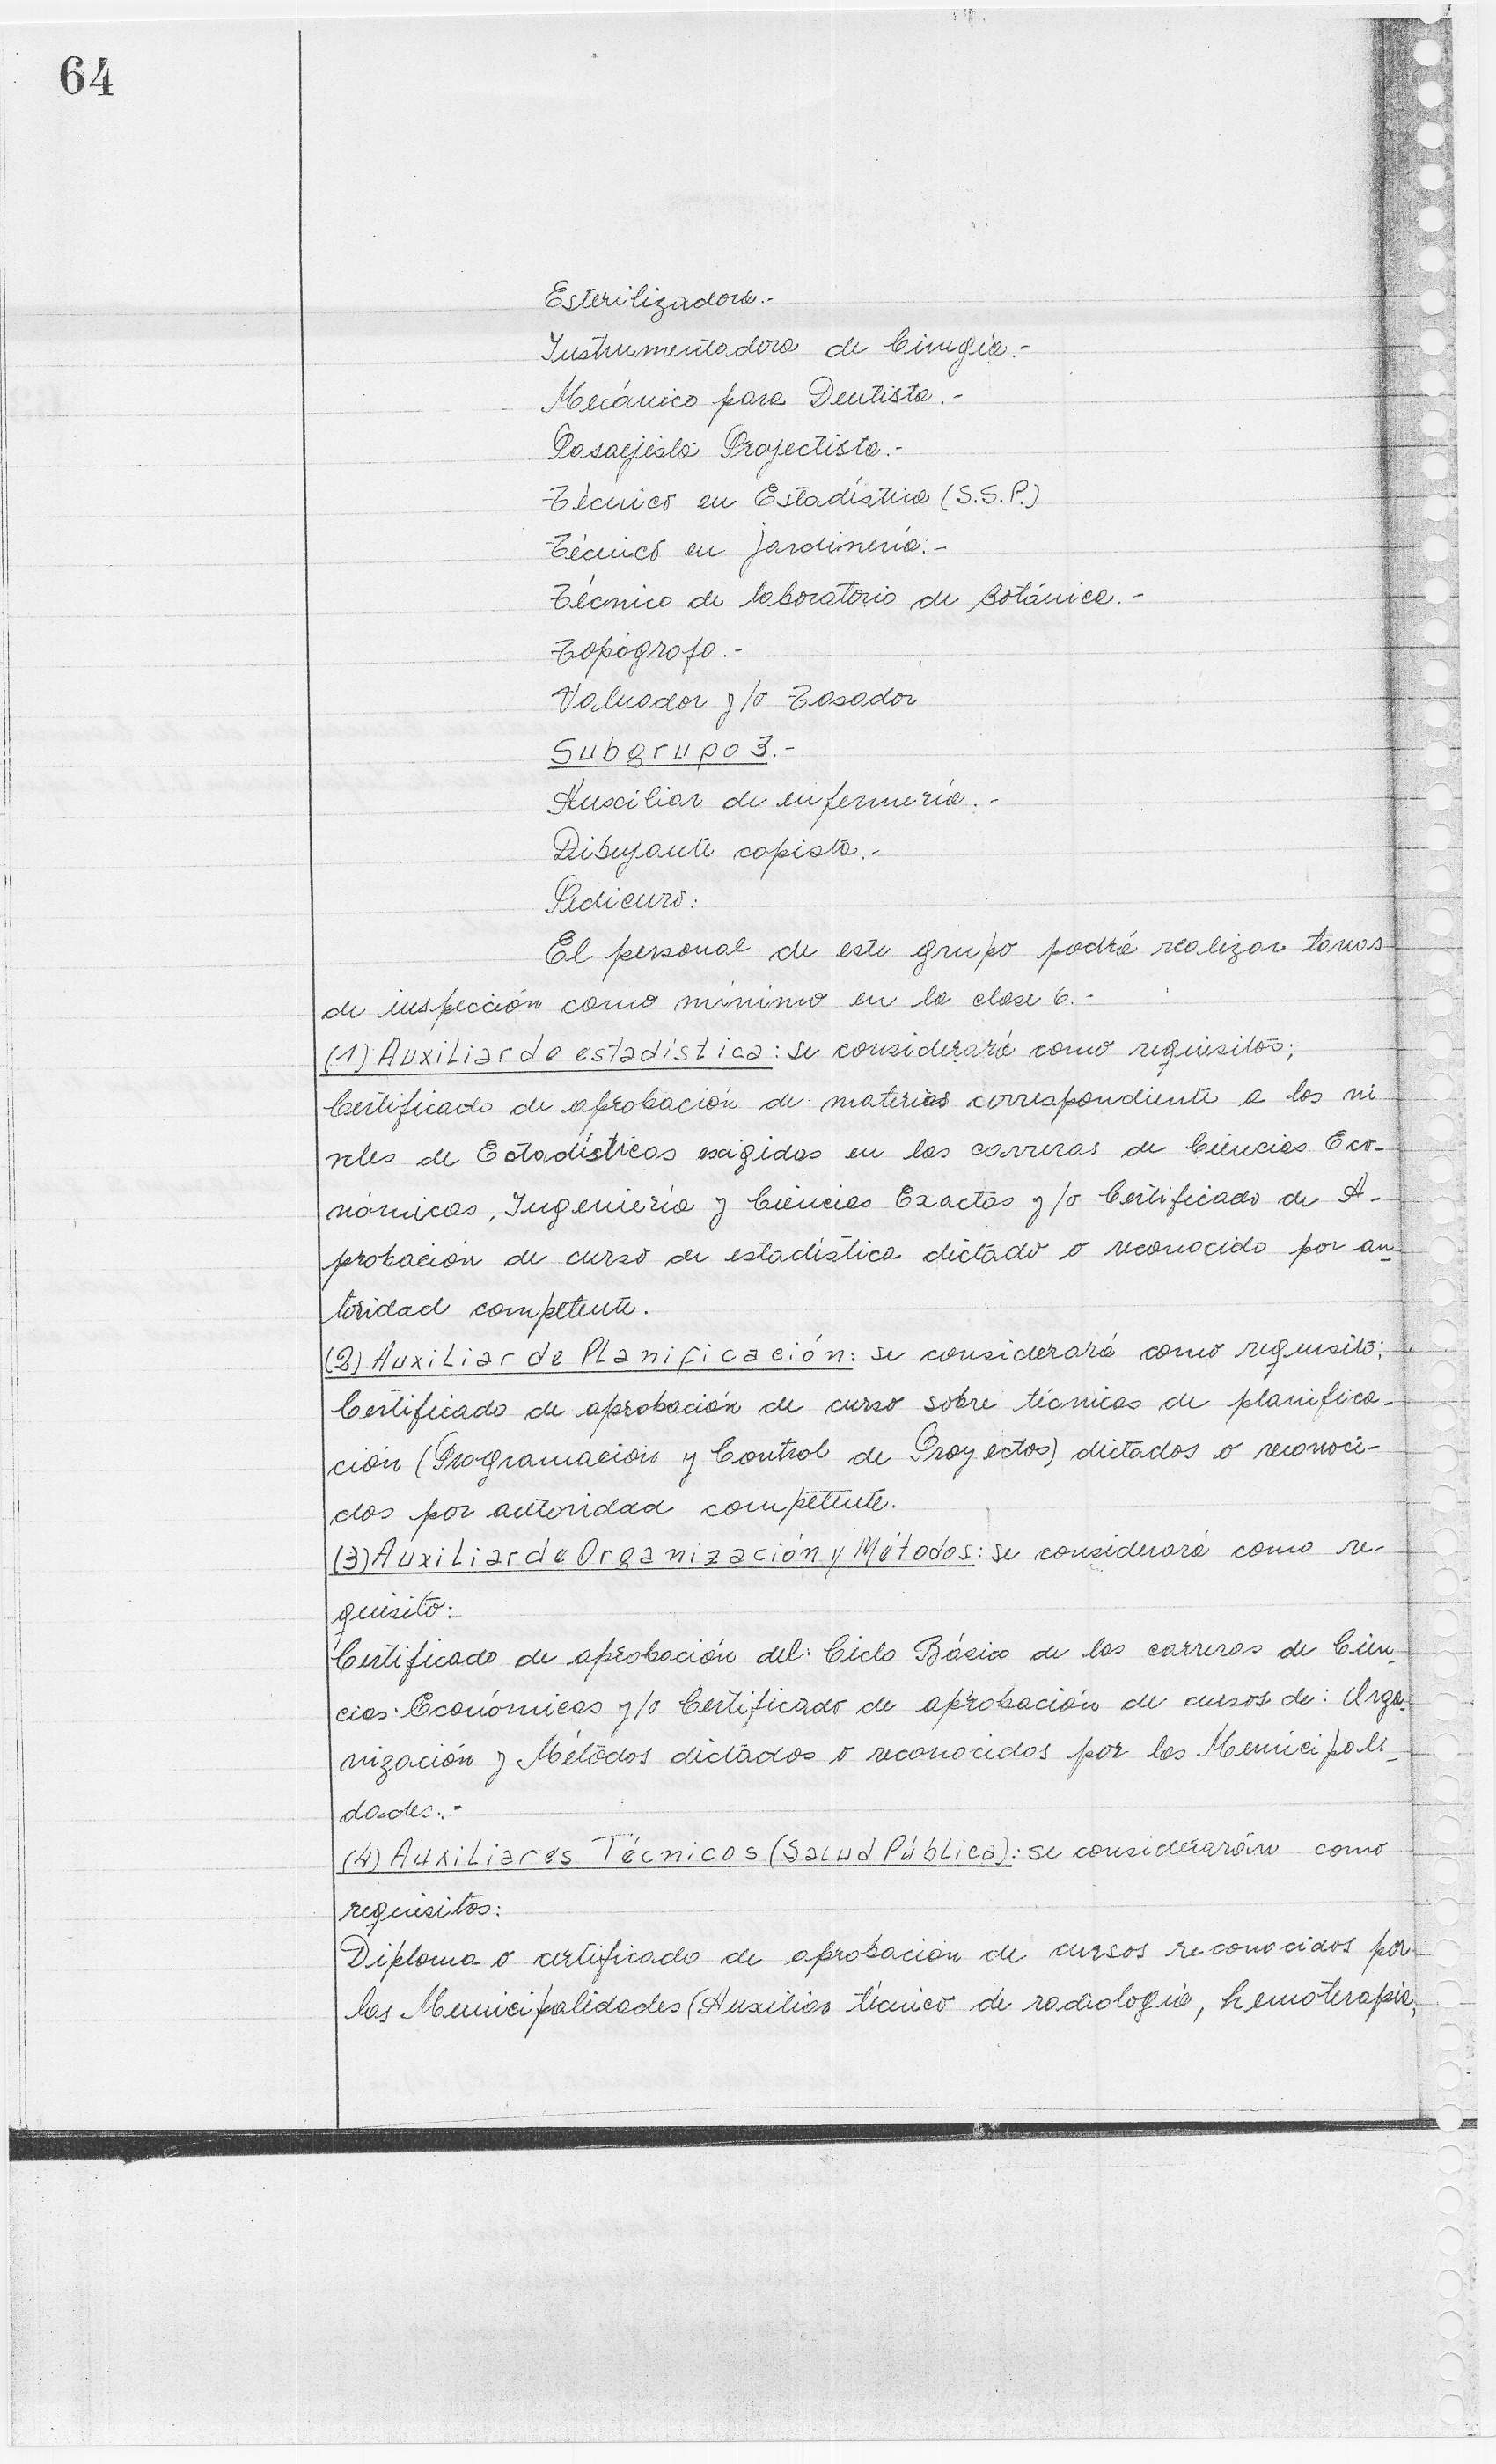 64
Esterilizadora.-
Instrumentadora de Cirugía.-
Mecánico para Dentista.-
Pasajista Proyectista.-
Técnico en Estadística (S.S.P.)
Técnico en jardinería.-
Técnico de laboratorio de Botánica.-
Topógrafo.-
Valuador y/o Tasador
Subgrupo 3.-
Auxiliar de enfermería.-
Dibujante copista.-
Pedicuro:
El personal de este grupo podrá realizar tareas
de inspección como mínimo en la clase 6.-
(1) Auxiliar de estadística: se considerará como requisitos;
Certificado de aprobación de materias correspondiente a los ni
veles de Estadísticas exigidas en las carreras de Ciencias Eco-
nómicas, Ingeniería y Ciencias Exactas y/o Certificado de A-
probación de curso de estadística dictado o reconocido por au-
toridad competente.
(2) Auxiliar de Planificación: se considerará como requisito;
Certificado de aprobación de curso sobre técnicas de planifica-
ción (Programación y Control de Proyectos) dictados o reconoci-
dos por autoridad competente.
(3) Auxiliar de Organización y Métodos: se considerará como re-
quisito:
Certificado de aprobación del Ciclo Básico de las carreras de Cien-
cias Económicas y/o Certificado de aprobación de cursos de: Orga-
nización y Métodos dictados o reconocidos por las Municipali-
dades.-
(4) Auxiliares Técnicos (Salud Pública): se considerarán como
requisitos:
Diploma o certificado de aprobación de cursos reconocidos por
las Municipalidades (Auxiliar técnico de radiología, hemoterapia,